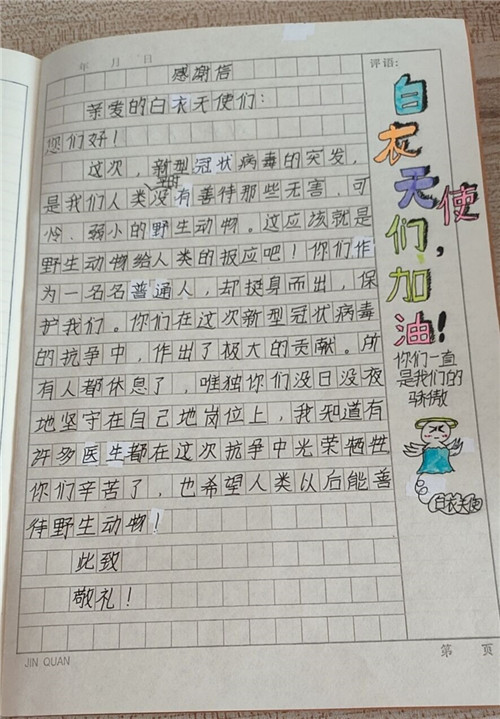 年 月 日
感谢信
亲爱的白衣天使们:
您们好!
这次,新型冠状病毒的突发,
是我们人类没有善待那些无害、可
怜、弱小的野生动物。这应该就是
野生动物给人类的报应吧!你们作
为一名名普通人,却挺身而出,保
护我们。你们在这次新型冠状病毒
的抗争中,作出了极大的贡献。所
有人都休息了,唯独你们没日没夜
地坚守在自己地岗位上,我知道有
许多医生都在这次抗争中光荣牺牲
你们辛苦了,也希望人类以后能善
待野生动物!
此致
敬礼!
评语:
白衣天使们,加油!
你们一直
是我们的
骄傲
白衣天使
JIN QUAN
第 页